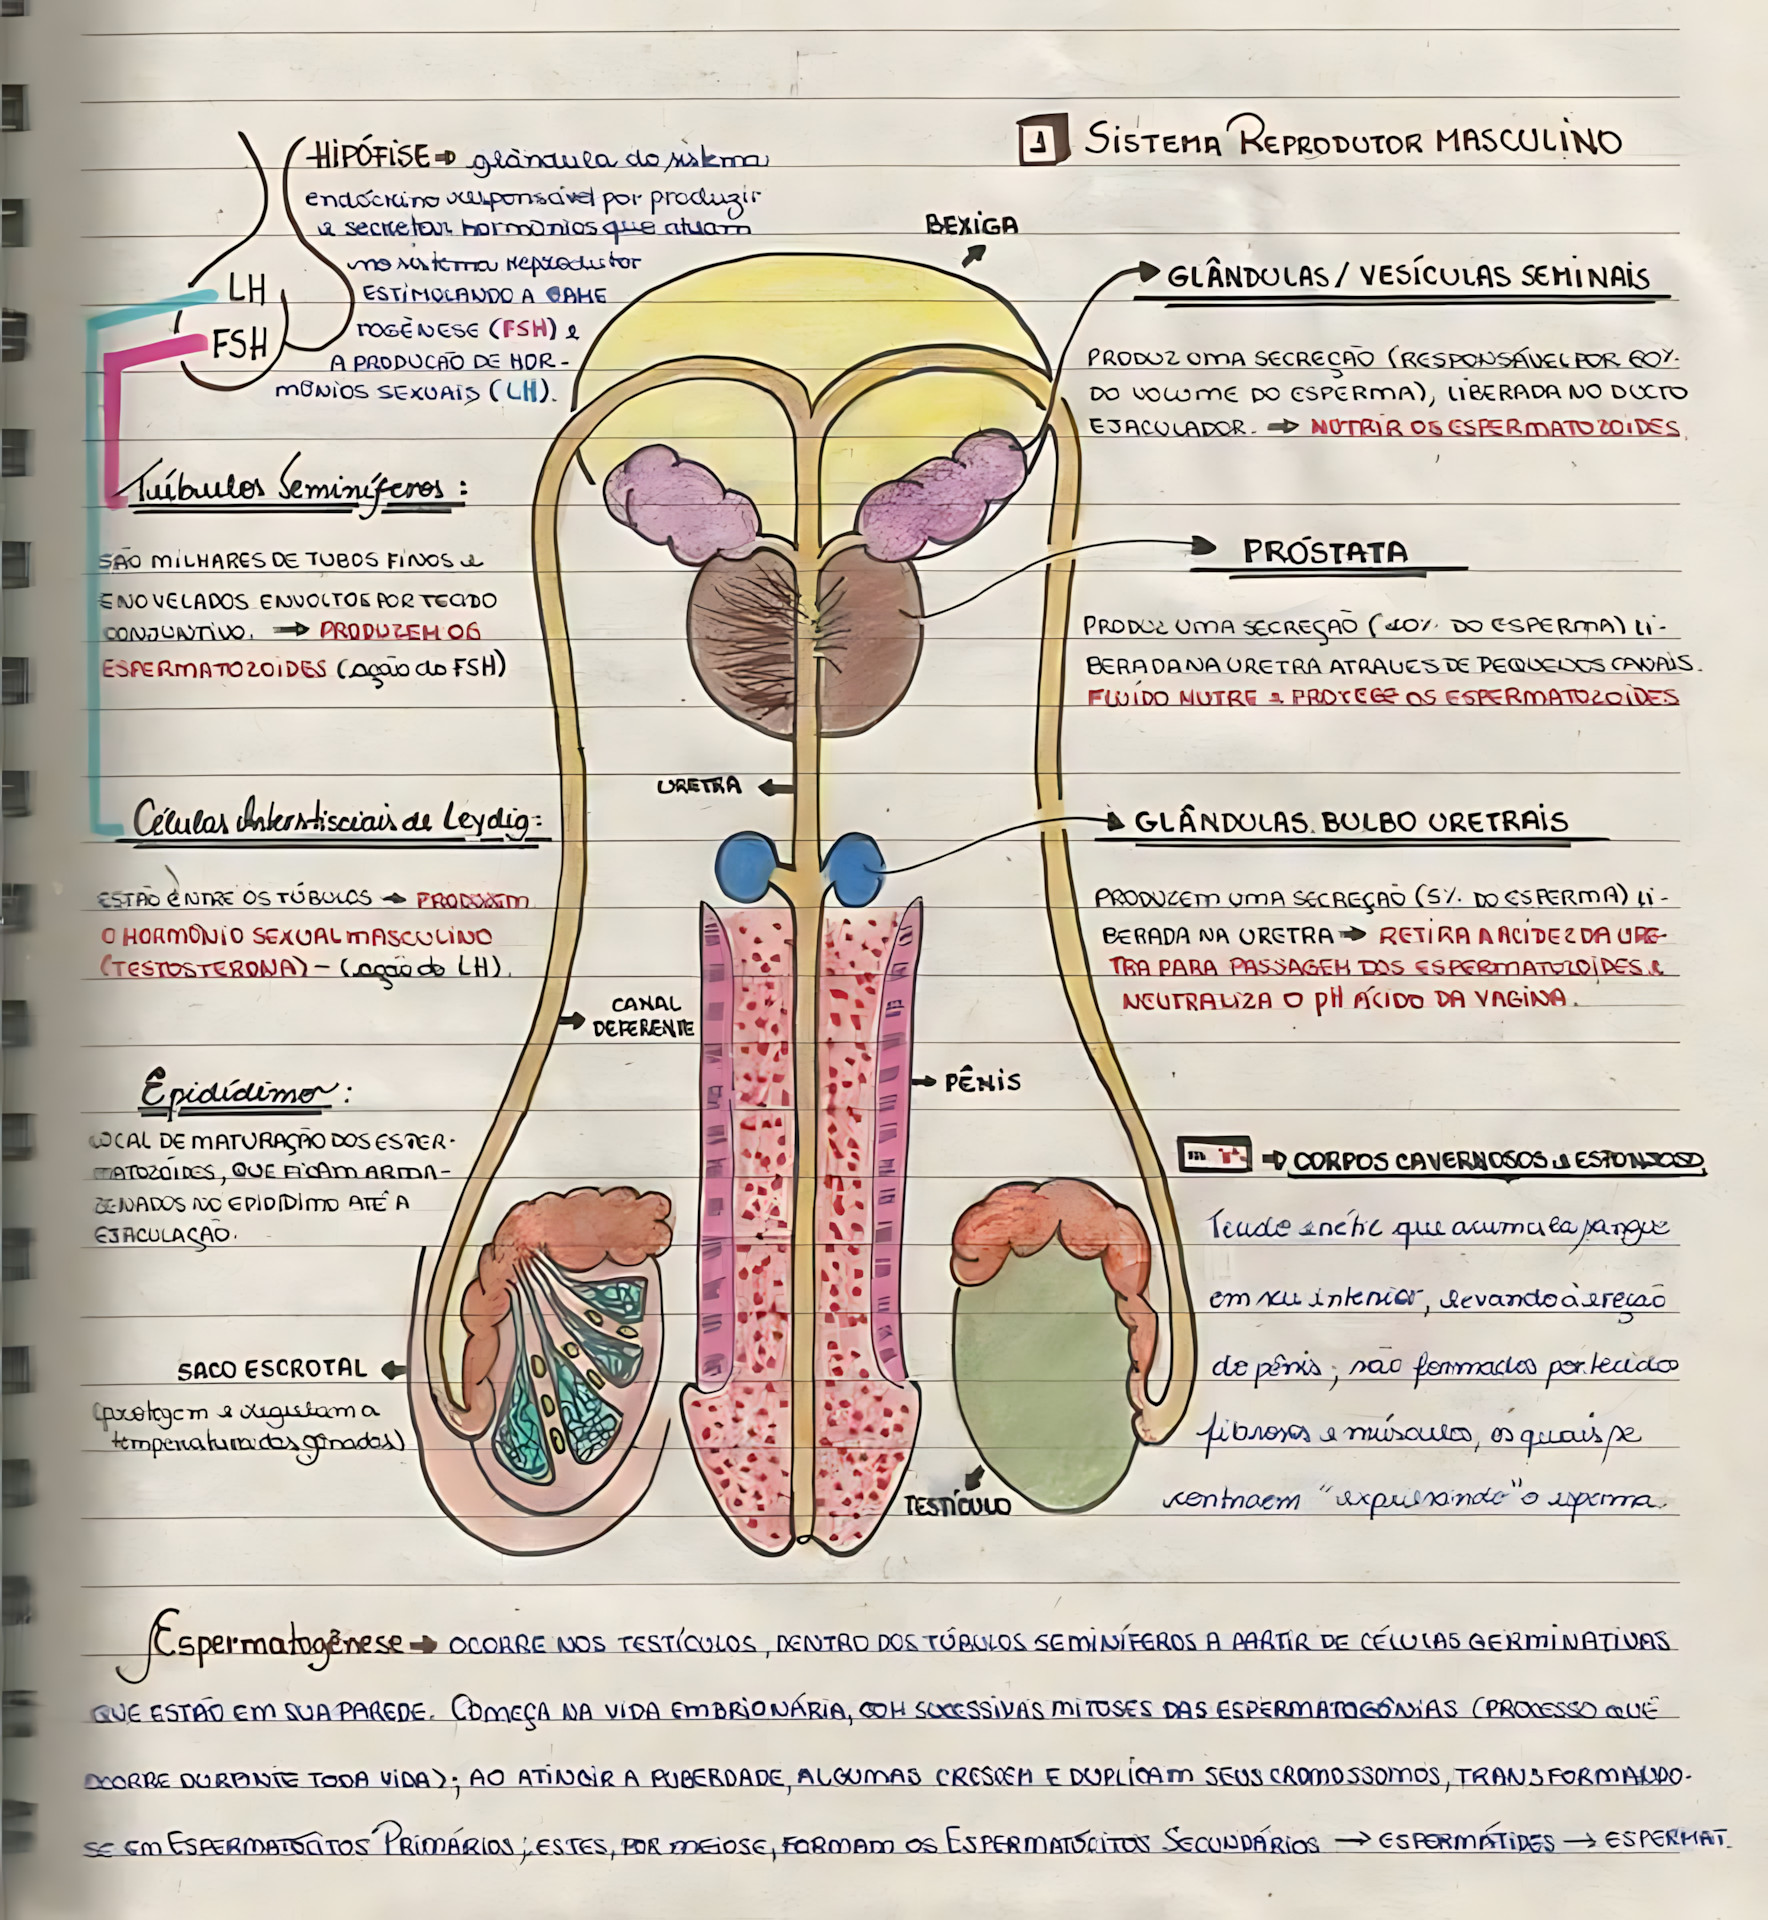 1 SISTEMA REPRODUTOR MASCULINO
HIPÓFISE → glândula do sistema
endócrino responsável por produzir
e secretar hormônios que atuam
no sistema reprodutor
ESTIMOLANDO A GAME
TOGÊNESE (FSH) e
A PRODUÇÃO DE HOR-
MÔNIOS SEXUAIS (LH).
LH
FSH
BEXIGA
GLÂNDULAS / VESÍCULAS SEMINAIS
PRODUZ UMA SECREÇÃO (RESPONSÁVEL POR 60%
DO VOLUME DO ESPERMA), LIBERADA NO DUCTO
EJACULADOR. → NUTRIR OS ESPERMATOZOIDES.
Tuíbulos Seminíferos:
SÃO MILHARES DE TUBOS FINOS e
ENOVELADOS ENVOLTOS POR TECIDO
CONJUNTIVO. → PRODUZEM OS
ESPERMATOZOIDES (ação do FSH)
PRÓSTATA
PRODUZ UMA SECREÇÃO ( DO ESPERMA) LI-
BERADA NA URETRA ATRAVES DE PEQUENOS CANAIS.
FLUÍDO NUTRE e PROTEGE OS ESPERMATOZOIDES
URETRA
Células Interstisciais de Leydig:
ESTÃO ENTRE OS TÚBULOS → PRODUZEM
O HORMÔNIO SEXUAL MASCULINO
(TESTOSTERONA) - (ação do LH).
GLÂNDULAS BULBO URETRAIS
PRODUZEM UMA SECREÇÃO (5% DO ESPERMA) LI-
BERADA NA URETRA → RETIRA A ACIDEZ DA URE-
TRA PARA PASSAGEM DOS ESPERMATOZOIDES e
NEUTRALIZA O pH ÁCIDO DA VAGINA.
CANAL
DEFERENTE
PÊNIS
Epidídimo:
LOCAL DE MATURAÇÃO DOS ESPER-
MATOZOIDES, QUE FICAM ARMA-
ZENADOS NO EPIDÍDIMO ATÉ A
EJACULAÇÃO.
→ CORPOS CAVERNOSOS e ESPONJOSO
Tecido erétil que acumula sangue
em seu interior, levando à ereção
do pênis; são formados por tecidos
fibrosos e músculos, os quais se
contraem "expulsando" o esperma.
SACO ESCROTAL
(protegem e regulam a
temperatura das gônadas)
TESTÍCULO
Espermatogênese → OCORRE NOS TESTÍCULOS, DENTRO DOS TÚBULOS SEMINÍFEROS A PARTIR DE CÉLULAS GERMINATIVAS
QUE ESTÃO EM SUA PAREDE. COMEÇA NA VIDA EMBRIONÁRIA, COM SUCESSIVAS MITOSES DAS ESPERMATOGÔNIAS (PROCESSO QUE
OCORRE DURANTE TODA VIDA); AO ATINGIR A PUBERDADE, ALGUMAS CRESCEM E DUPLICAM SEUS CROMOSSOMOS, TRANSFORMANDO-
SE EM ESPERMATÓCITOS PRIMÁRIOS; ESTES, POR MEIOSE, FORMAM OS ESPERMATÓCITOS SECUNDÁRIOS → ESPERMÁTIDES → ESPERMAT.